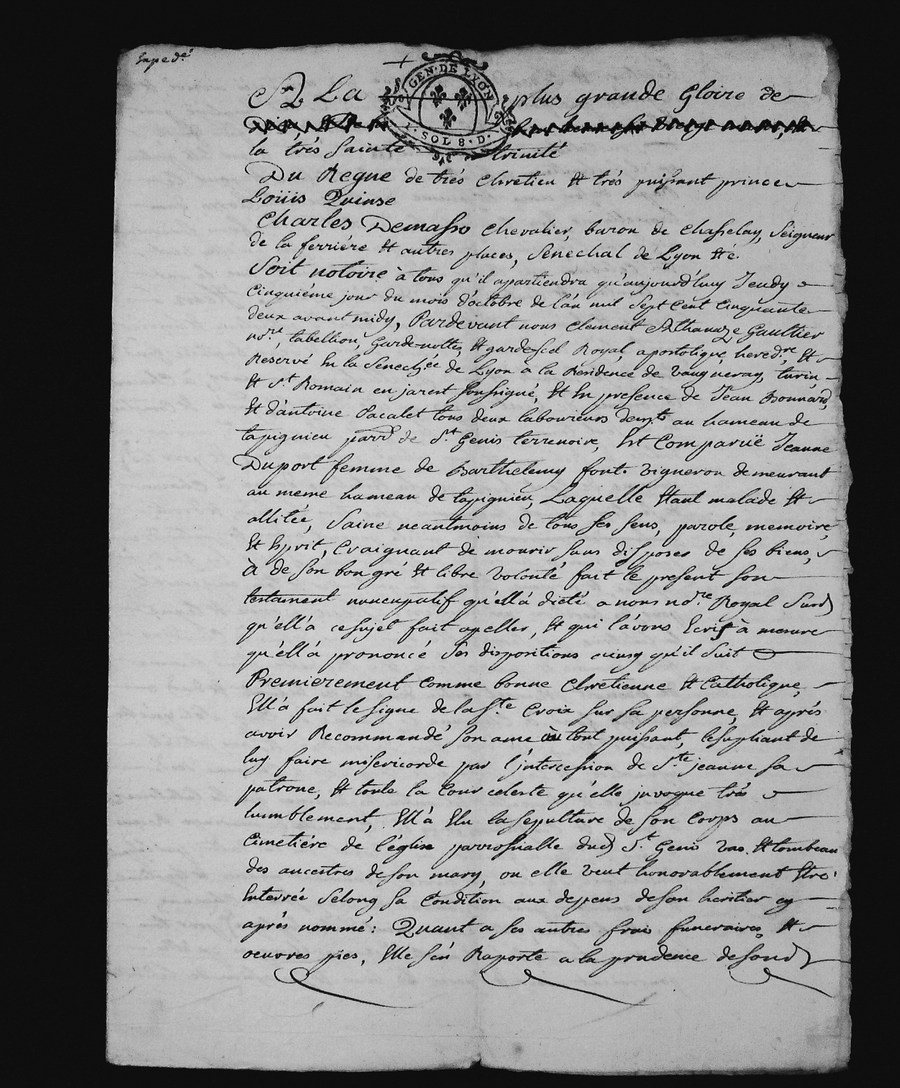 Exped.é
GEN·DE LYON
SOL 8·D·
A La plus grande Gloire de
la trés sainte trinité
Du Regne de trés chretien et trés puissant prince
Loüis Quinse
Charles Demasso chevalier, baron de chasselay, seigneur
de la ferriere et autres places, senechal de Lyon &c.
Soit notoire à tous qu'il apartiendra qu'aujourd'huy Jeudy
cinquiéme jour du mois d'octobre de l'an mil sept cent cinquante
deux avant midy, Pardevant nous clement Athanaze Gaultier
no.re, tabellion, Gardenottes, et gardescel Royal, apostolique, hered.re et
Reservé En la Senechéé de Lyon à la Residence de vaugneray, turin
et s.t Romain en jarest soussigné, et En presence de Jean Bonnard,
et d'antoine Pacalet tous deux laboureurs dem.ts au hameau de
tapignieu parr.e de s.t Genis terrenoire, Est Comparuë Jeanne
Duport femme de Barthelemy font vigneron demeurant
au meme hameau de tapignieu, Laquelle Etant malade et
allitée, saine neantmoins de tous ses sens, parole, memoire,
et Esprit, craignant de mourir sans disposer de ses biens,
à de son bon gré et libre volonté fait le present son
testament nuncupatif qu'ell'à dicté a nous no.re Royal Susd
qu'ell'à ce sujet fait apeller, et qui l'avons Ecrit à mesure
qu'ell'à prononcé ses dispositions ainsy qu'il suit
Premierement comme bonne chretienne et catholique,
Ell'à fait le signe de la s.te croix sur sa personne, et aprés
avoir Recommandé son ame au tout puissant, le supliant de
luy faire misericorde par l'intercession de s.te jeanne sa
patrone, et toute la cour celeste qu'elle jnvoque trés
humblement, Ell'à Elu la sepulture de son corps au
cimetiére de l'église parroissialle dud s.t Genis vas et tombeau
des ancestres de son mary, ou elle veut honorablement Etre
Interrée selong sa condition aux depens de son heritier cy
aprés nommé: Quant a ses autres frais funeraires, et
oeuvres pies, Elle s'en Raporte a la prudence de sond